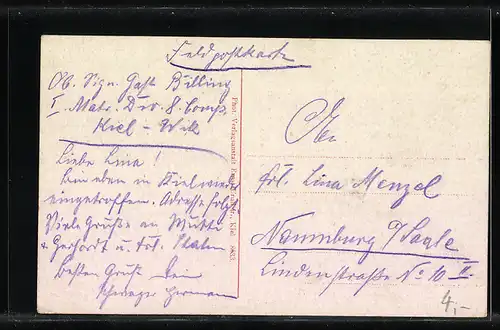 Feldpostkarte
Ob. Sign. Gast Billing
I. Matr. Div. 8. Comp.
Kiel - Wik
Liebe Lina!
bin eben in Kiel
eingetroffen. Adresse folgt
Viele Grüße an Mutti
+ Gerhart u. Frl.
Besten Gruß Dein
Schwager Hermann
Phot. Verlagsanstalt Kiel.
An
Frl. Lina Menzel
Naumburg / Saale
Lindenstraße No 10 II
4,-